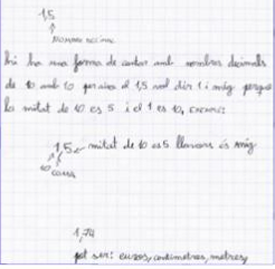 1,5
NOMBRE DECIMAL
hi ha una forma de contar amb nombres decimals
de 10 amb 10 per això el 1,5 vol dir 1 i mig perque
la mitat de 10 es 5 i el 1 es 10,
1,5 mitat de 10 es 5 llavors és mig
10 COMA
1,74
pot ser: euros, centimetres, metres,